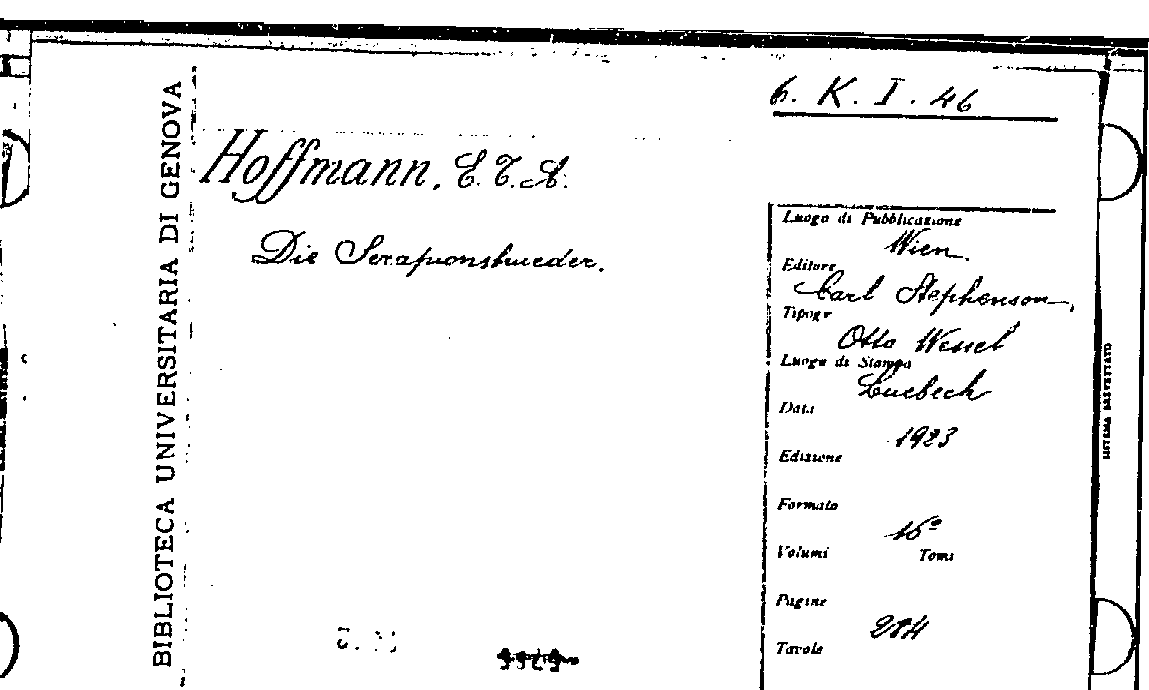 BIBLIOTECA UNIVERSITARIA DI GENOVA
6. K. I. 46
Hoffmann, E.T.A.
Die Serapionsbrueder.
Luogo di Pubblicazione
Wien.
Editore
Carl Stephenson,
Tipogr
Otto Wessel
Luogo di Stampa
Luebeck
Data
1923
Edizione
Formato
16º
Volumi Tomi
Pagine
284
Tavole
SISTEMA BREVETTATO